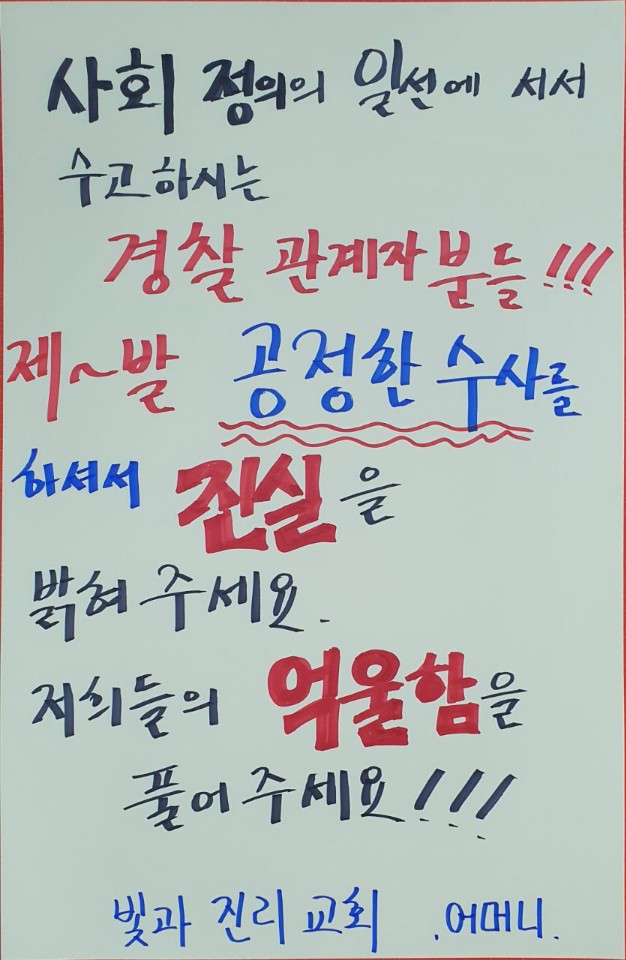 사회 정의의 일선에 서서
수고하시는
경찰 관계자분들!!!
제~발 공정한 수사를
하셔서 진실을
밝혀 주세요.
저희들의 억울함을
풀어 주세요!!!
빛과 진리 교회 .어머니.